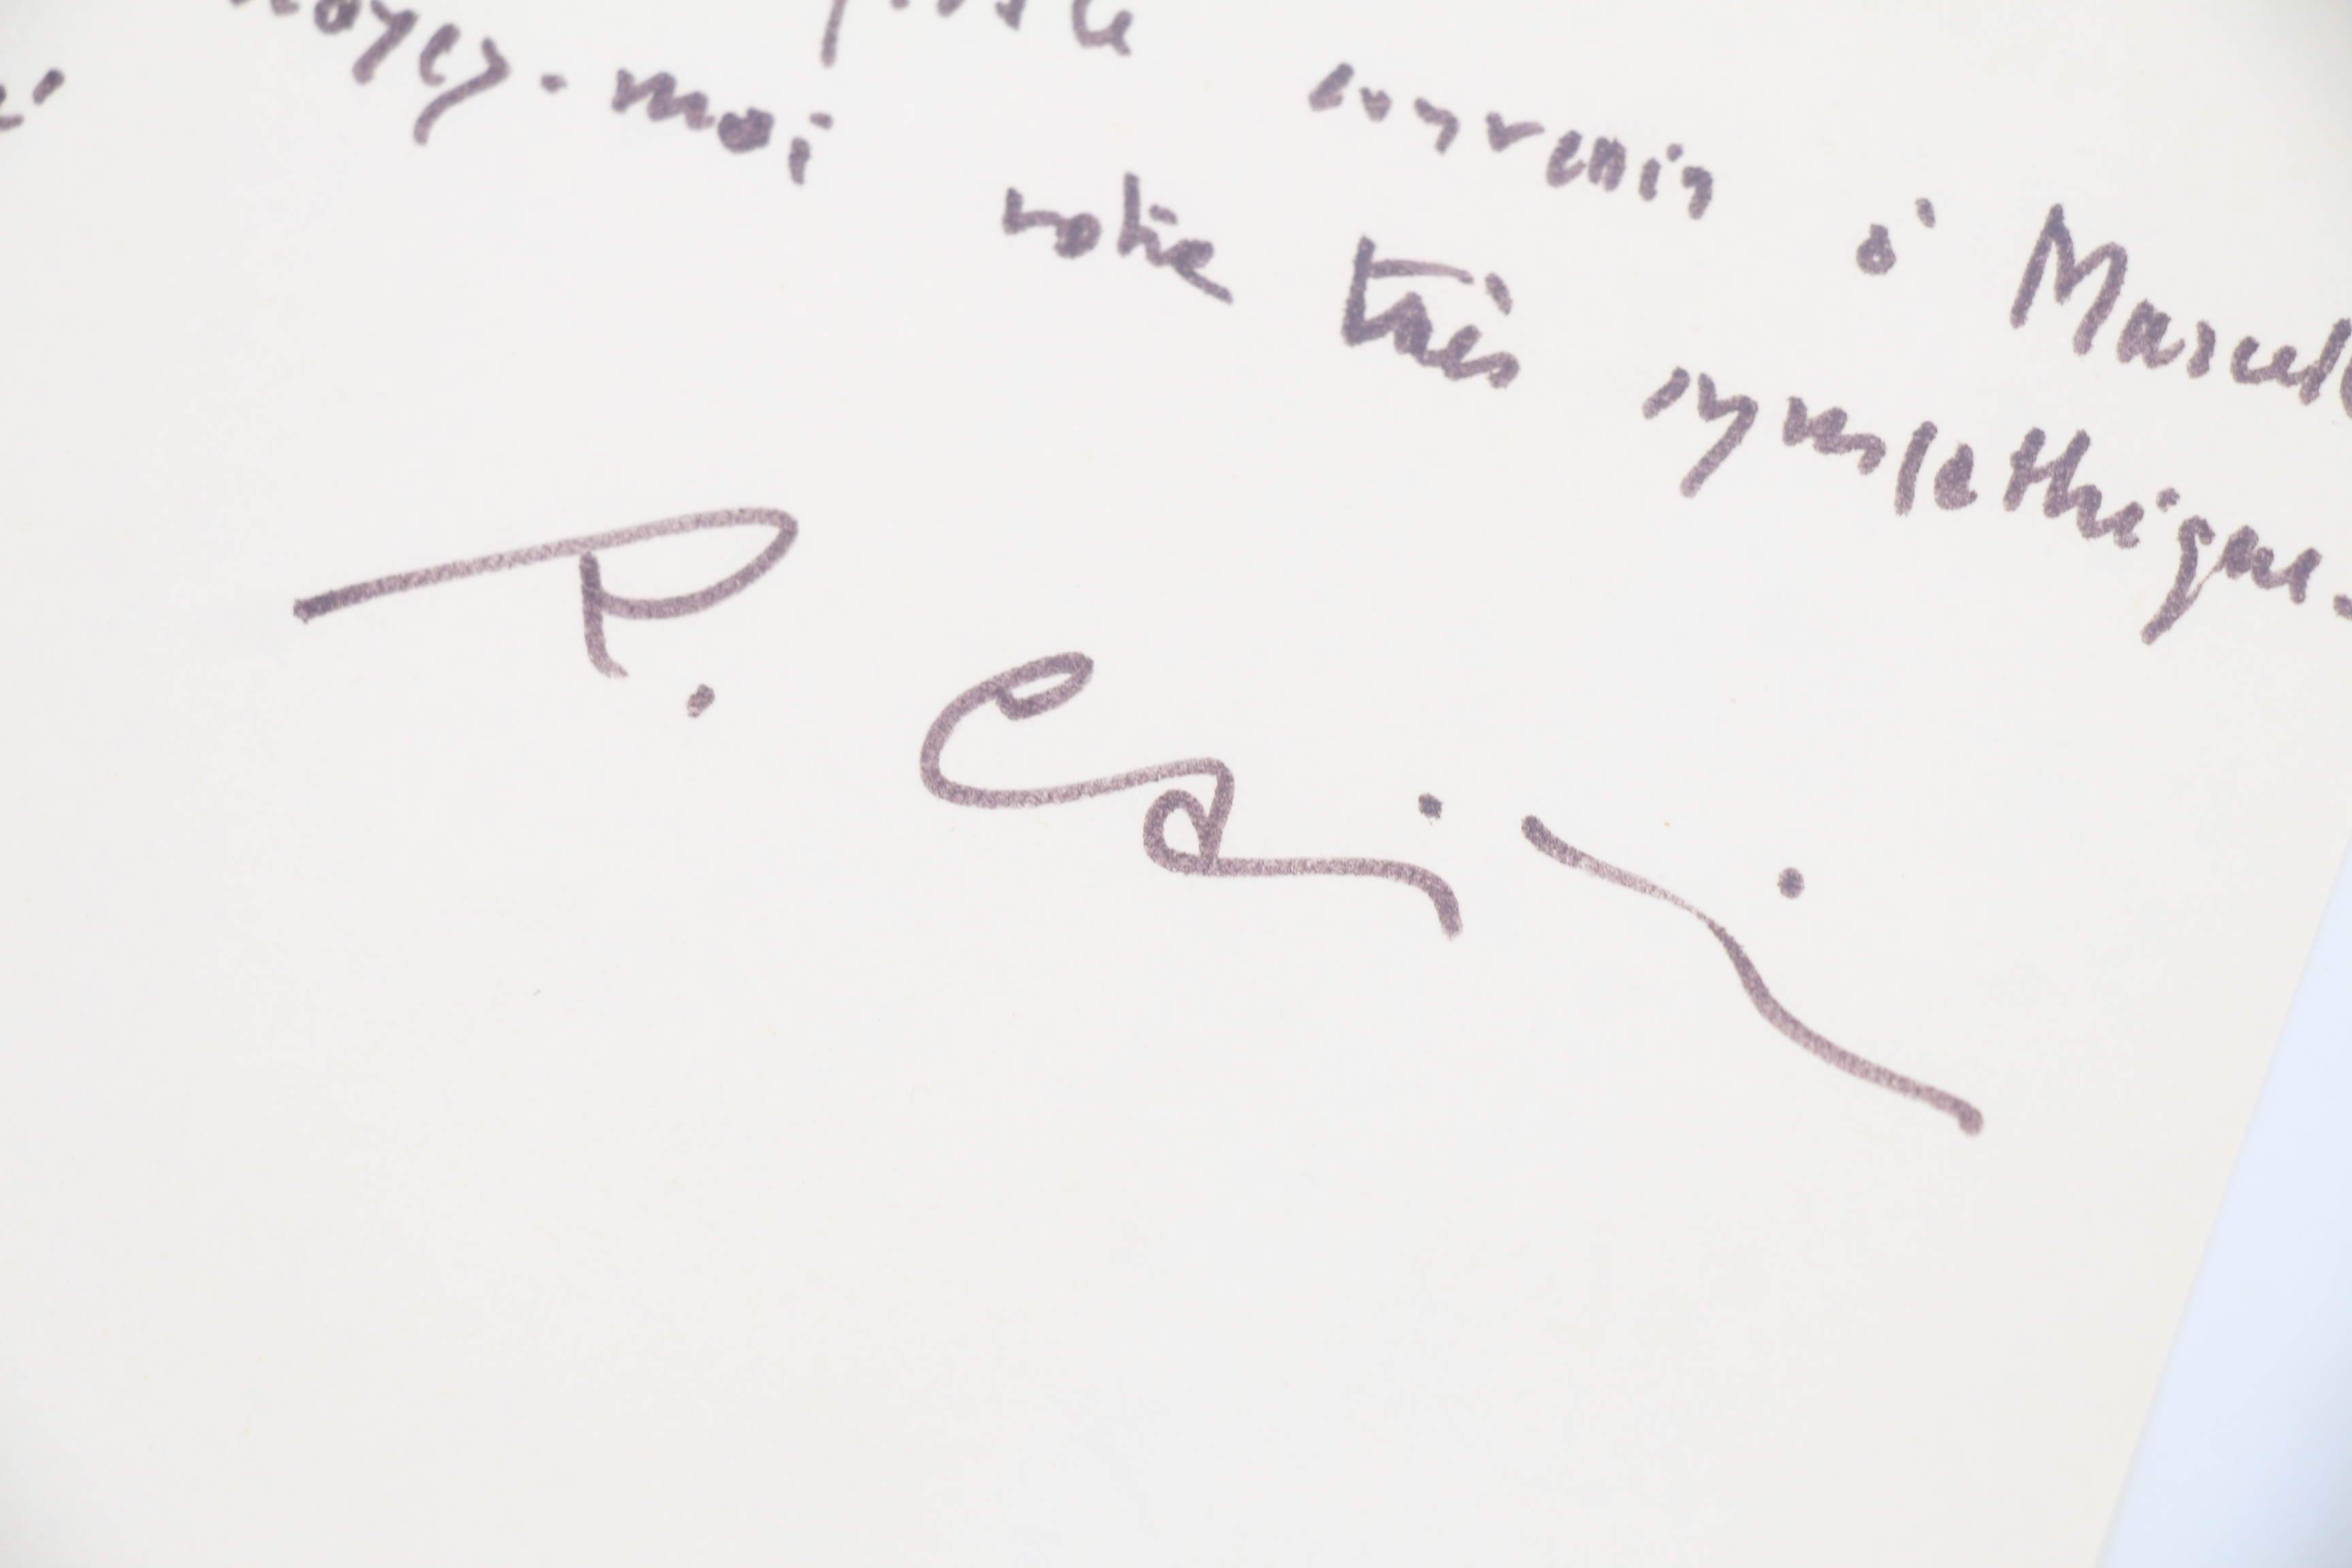 souvenir à Marcell
royez-moi votre très sympathique-
R.